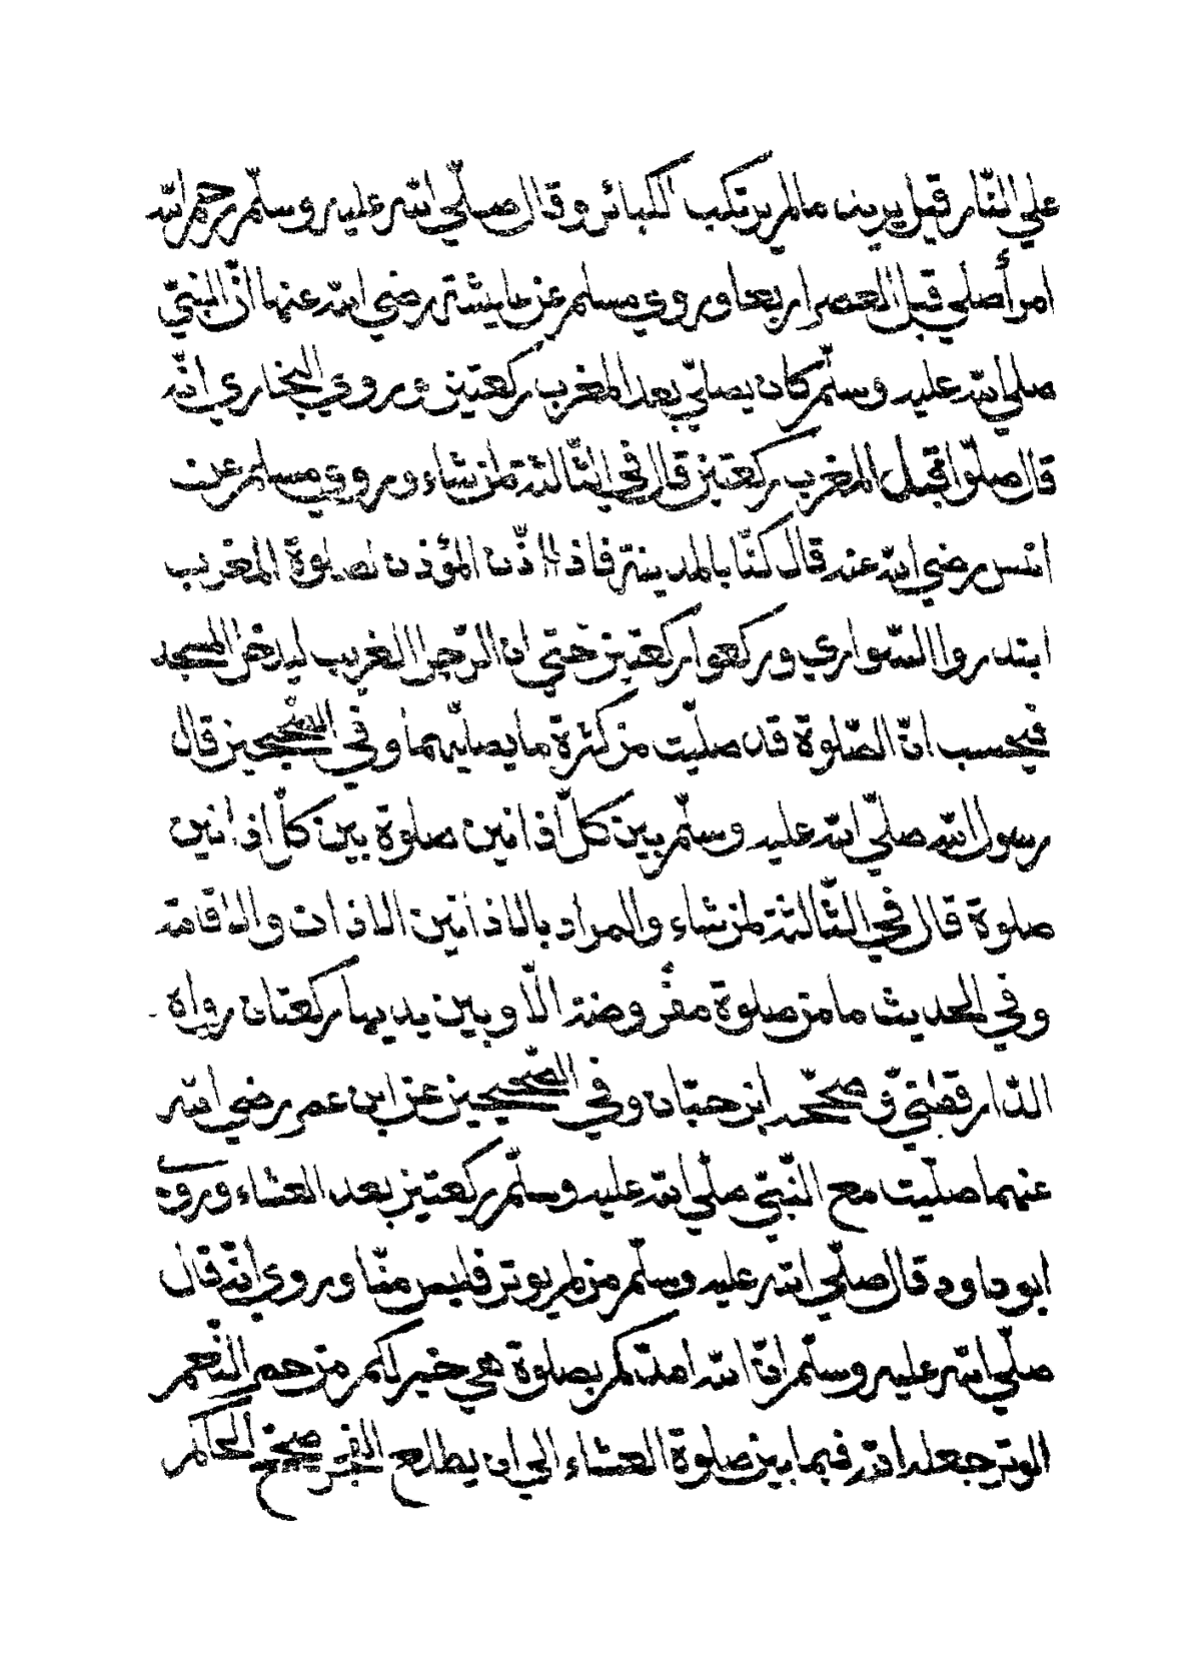 على النّار قيل يريد ما لم يرتكب الكبائر وقال صلّى الله عليه وسلّم رحم الله
امرأ صلى قبل العصر اربعا وروي مسلم عن عايشة رضي الله عنها انّ النبيّ
صلى الله عليه وسلّم كان يصلّي بعد المغرب ركعتين وروي البخاري انّه
قال صلّوا قبل المغرب ركعتين قال في الثّالثة لمن شاء وروي مسلم عن
انس رضي الله عنه قال كنّا بالمدينة فاذا اذّن المؤذن لصلوة المغرب
ابتدروا السّواري وركعوا ركعتين حتي ان الرّجل الغريب ليدخل المسجد
فيحسب انّ الصّلوة قد صلّيت من كثرة ما يصلّيهما وفي الصّحيحين قال
رسول الله صلّي الله عليه وسلّم بين كلّ اذانين صلوة بين كلّ اذانين
صلوة قال في الثّالثة لمن شاء والمراد بالاذانين الاذان والاقامة
وفي الحديث ما من صلوة مفروضة الّا وبين يديها ركعتان رواه
الدّارقطنيّ وصحّحه ابن حبّان وفي الصّحيحين عن ابن عمر رضي الله
عنهما صلّيت مع النّبيّ صلّي الله عليه وسلّم ركعتين بعد العشاء وروي
ابو داود قال صلّي الله عليه وسلّم من لم يوتر فليس منّا وروي انّه قال
صلّي الله عليه وسلّم انّ الله امدّكم بصلوة هي خير لكم من حمر النّعم
الوتر جعله الله فيما بين صلوة العشاء الي ان يطلع الفجر صحّح الحاكم